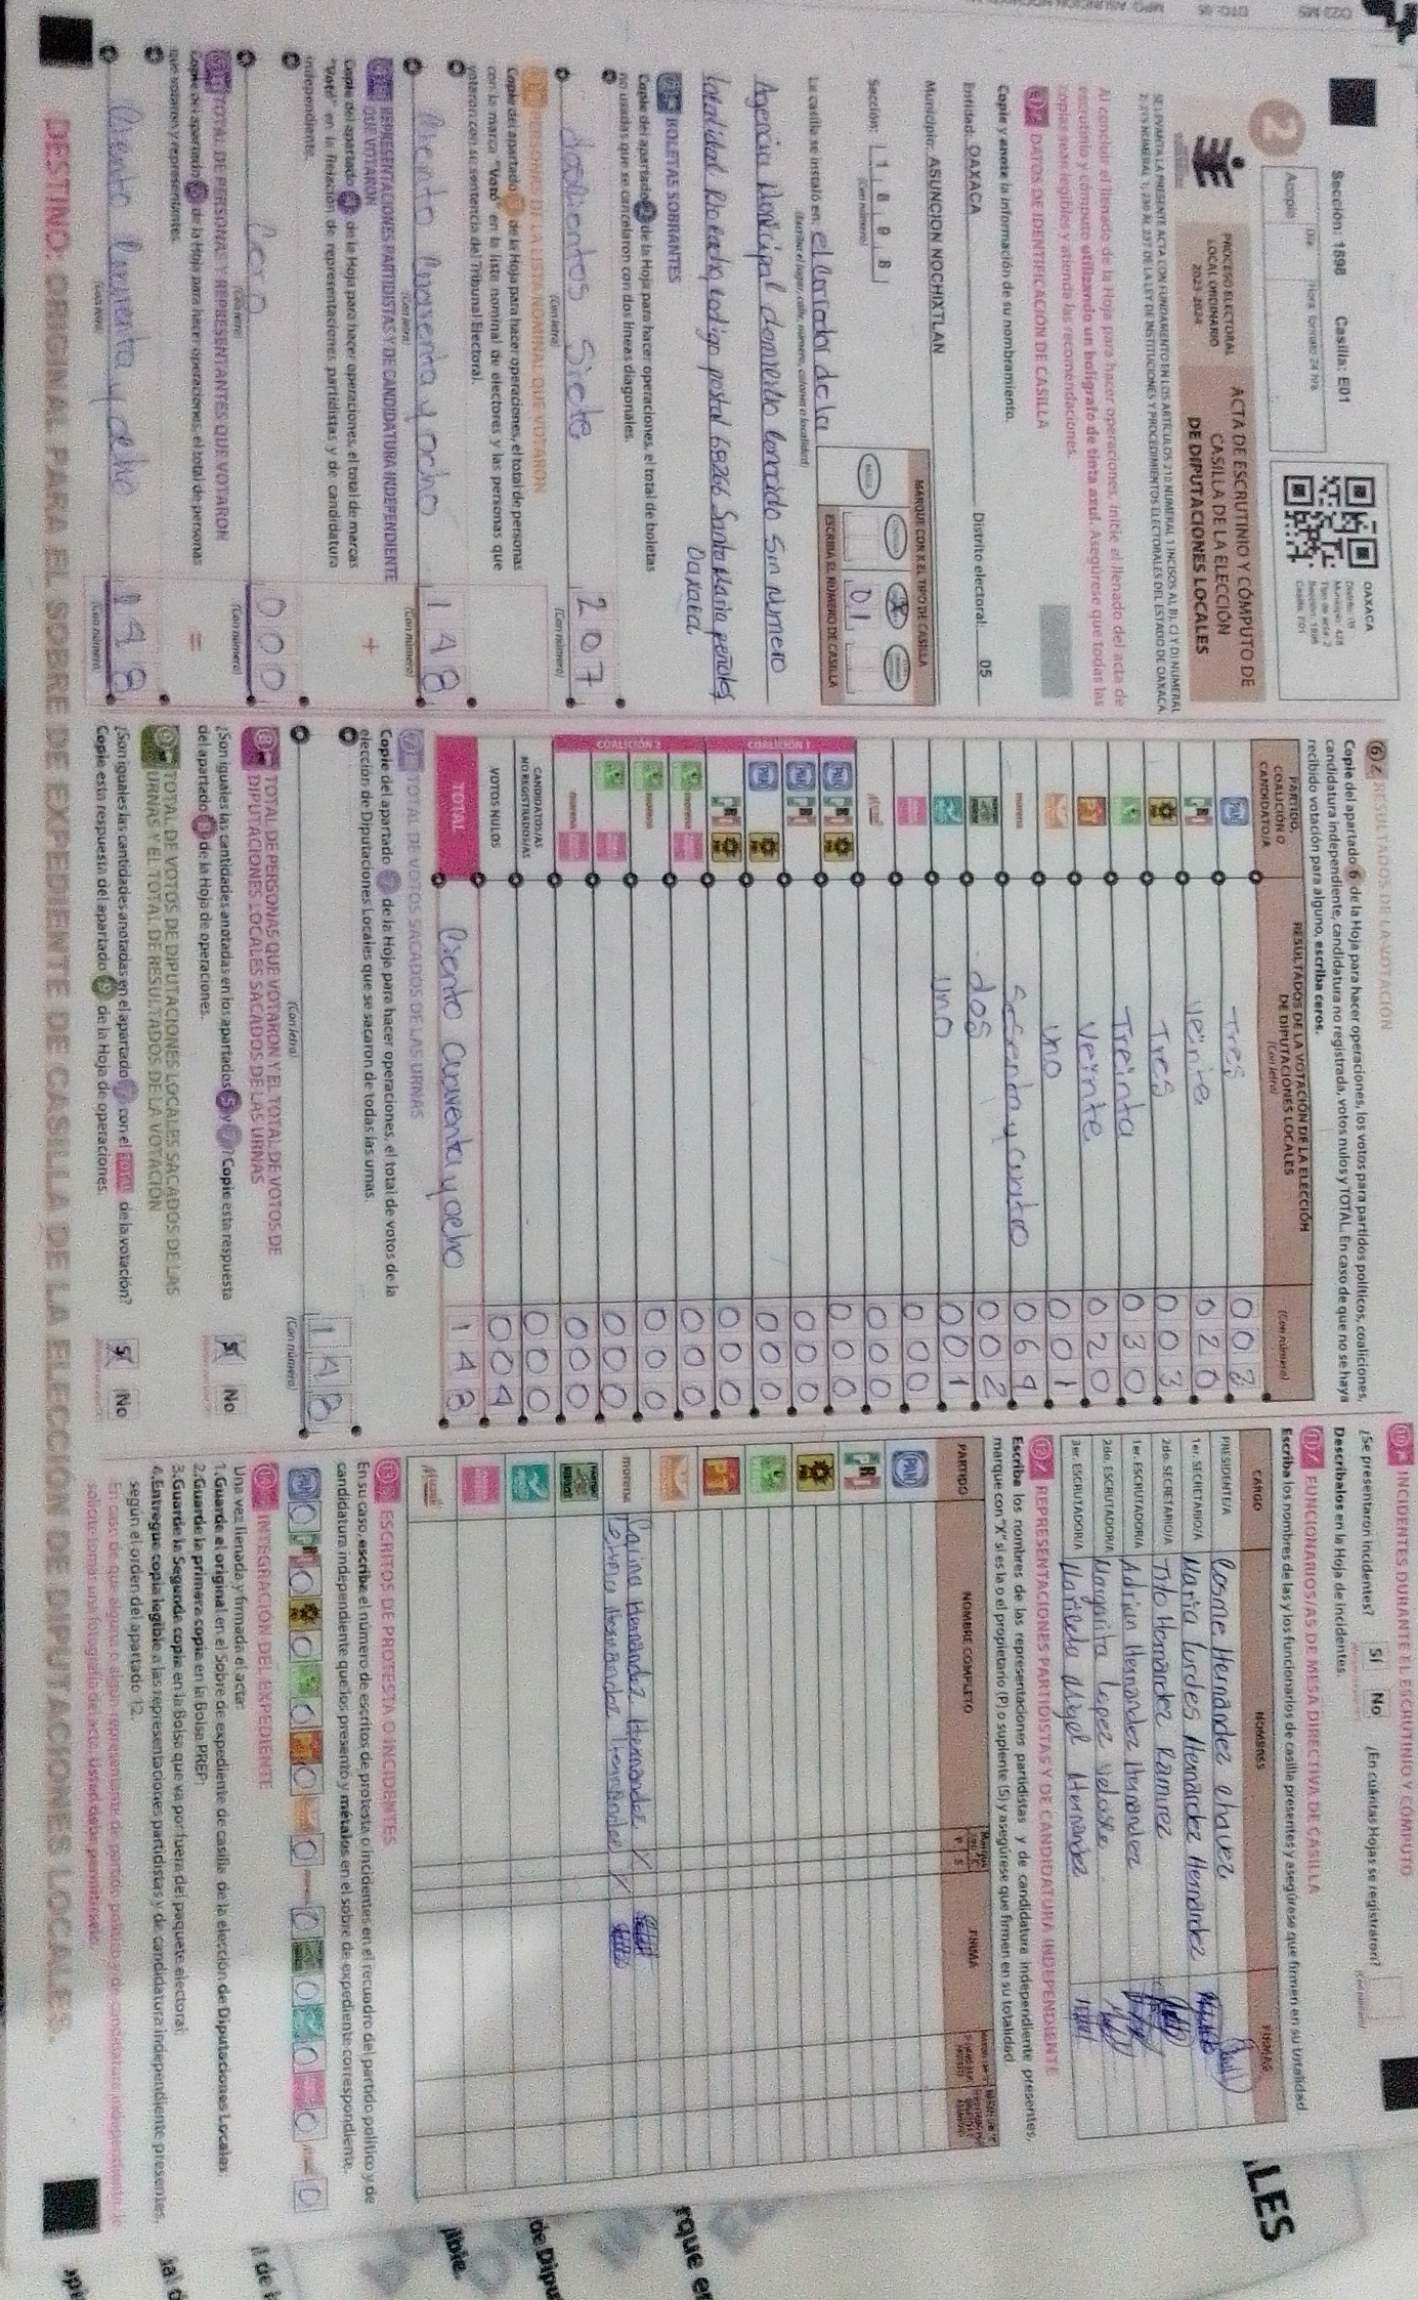 Sección: 1898 Casilla: E01
OAXACA
Distrito: 05
Municipio: 428
Tipo de acta: 2
Sección: 1898
Casilla: E01
2
Acopio
Día
Hora formato 24 hrs
PROCESO ELECTORAL
LOCAL ORDINARIO
2023-2024
ACTA DE ESCRUTINIO Y CÓMPUTO DE
CASILLA DE LA ELECCIÓN
DE DIPUTACIONES LOCALES
Al concluir el llenado de la Hoja para hacer operaciones, inicie el llenado del acta de
escrutinio y cómputo utilizando un bolígrafo de tinta azul. Asegúrese que todas las
copias sean legibles y atienda las recomendaciones.
1 DATOS DE IDENTIFICACIÓN DE CASILLA
Copie y anote la información de su nombramiento.
Entidad: OAXACA Distrito electoral: 05
Municipio: ASUNCION NOCHIXTLAN
Sección: 1 8 9 8
(Con número)
MARQUE CON X EL TIPO DE CASILLA
ESCRIBA EL NÚMERO DE CASILLA
01
La casilla se instaló en: el Corredor de la
(Escriba el lugar, calle, número, colonia o localidad)
Agencia Municipal domicilio Conocido Sin Numero
localidad Rio cacho, codigo postal 68266 Santa Maria peñoles
Oaxaca
BOLETAS SOBRANTES
Copie del apartado 2 de la Hoja para hacer operaciones, el total de boletas
no usadas que se cancelaron con dos líneas diagonales.
docientos Siete 207
(Con letra) (Con número)
PERSONAS DE LA LISTA NOMINAL QUE VOTARON
Copie del apartado de la Hoja para hacer operaciones, el total de personas
con la marca "Votó" en la lista nominal de electores y las personas que
votaron con su sentencia del Tribunal Electoral.
148
(Con letra) (Con número)
REPRESENTACIONES PARTIDISTAS Y DE CANDIDATURA INDEPENDIENTE
QUE VOTARON
Copie del apartado 4 de la Hoja para hacer operaciones, el total de marcas
"Votó" en la Relación de representaciones partidistas y de candidatura
independiente.
Cero 000
(Con letra) (Con número)
+
TOTAL DE PERSONAS Y REPRESENTANTES QUE VOTARON
Copie del apartado 5 de la Hoja para hacer operaciones, el total de personas
que votaron y representantes.
=
148
(Con letra) (Con número)
6 RESULTADOS DE LA VOTACIÓN
Copie del apartado 6 de la Hoja para hacer operaciones, los votos para partidos políticos, coaliciones,
candidatura independiente, candidatura no registrada, votos nulos y TOTAL. En caso de que no se haya
recibido votación para alguno, escriba ceros.
PARTIDO,
COALICIÓN O
CANDIDATO/A
RESULTADOS DE LA VOTACIÓN DE LA ELECCIÓN
DE DIPUTACIONES LOCALES
(Con letra)
(Con número)
PAN Tres 003
PRI veinte 020
Tres 003
Treinta 030
PT veinte 020
uno 001
morena Sesenta y cuatro 064
dos 002
uno 001
000
000
COALICIÓN 1
PAN PRI 000
PAN PRI 000
PAN 000
PRI 000
COALICIÓN 2
morena 000
morena 000
000
morena 000
CANDIDATOS/AS
NO REGISTRADOS/AS 000
VOTOS NULOS 004
TOTAL 148
TOTAL DE VOTOS SACADOS DE LAS URNAS
Copie del apartado 7 de la Hoja para hacer operaciones, el total de votos de la
elección de Diputaciones Locales que se sacaron de todas las urnas.
148
(Con letra) (Con número)
8 TOTAL DE PERSONAS QUE VOTARON Y EL TOTAL DE VOTOS DE
DIPUTACIONES LOCALES SACADOS DE LAS URNAS
¿Son iguales las cantidades anotadas en los apartados 5 y 7? Copie esta respuesta
del apartado 8 de la Hoja de operaciones. Sí No
9 TOTAL DE VOTOS DE DIPUTACIONES LOCALES SACADOS DE LAS
URNAS Y EL TOTAL DE RESULTADOS DE LA VOTACIÓN
¿Son iguales las cantidades anotadas en el apartado 7 con el TOTAL de la votación?
Copie esta respuesta del apartado 9 de la Hoja de operaciones. Sí No
10 INCIDENTES DURANTE EL ESCRUTINIO Y CÓMPUTO
¿Se presentaron incidentes? Sí No ¿En cuántas Hojas se registraron?
Descríbalos en la Hoja de Incidentes.
11 FUNCIONARIOS/AS DE MESA DIRECTIVA DE CASILLA
Escriba los nombres de las y los funcionarios de casilla presentes y asegúrese que firmen en su totalidad
CARGO NOMBRES FIRMAS
PRESIDENTE/A Cosme Hernández chavez
1er. SECRETARIO/A Maria Lurdes Hernandez Hernandez
2do. SECRETARIO/A Tito Hernández Ramirez
1er. ESCRUTADOR/A Adrian Hernandez Hernandez
2do. ESCRUTADOR/A Margarita lopez
3er. ESCRUTADOR/A Hernandez
12 REPRESENTACIONES PARTIDISTAS Y DE CANDIDATURA INDEPENDIENTE
Escriba los nombres de las representaciones partidistas y de candidatura independiente presentes,
marque con "X" si es la o el propietario (P) o suplente (S) y asegúrese que firmen en su totalidad
PARTIDO NOMBRE COMPLETO FIRMA
PAN
PRI
PT
morena Carina Hernández Hernandez
13 ESCRITOS DE PROTESTA O INCIDENTES
En su caso, escriba el número de escritos de protesta o incidentes en el recuadro del partido político y de
candidatura independiente que los presentó y métalos en el sobre de expediente correspondiente.
PAN 0 PRI 0 0 0 0 0 0 0 0 0 0
INTEGRACIÓN DEL EXPEDIENTE
Una vez llenada y firmada el acta:
1. Guarde el original en el Sobre de expediente de casilla de la elección de Diputaciones Locales.
2. Guarde la primera copia en la Bolsa PREP;
3. Guarde la Segunda copia en la Bolsa que va por fuera del paquete electoral;
4. Entregue copia legible a las representaciones partidistas y de candidatura independiente presentes,
según el orden del apartado 12.
DESTINO: ORIGINAL PARA EL SOBRE DE EXPEDIENTE DE CASILLA DE LA ELECCIÓN DE DIPUTACIONES LOCALES.